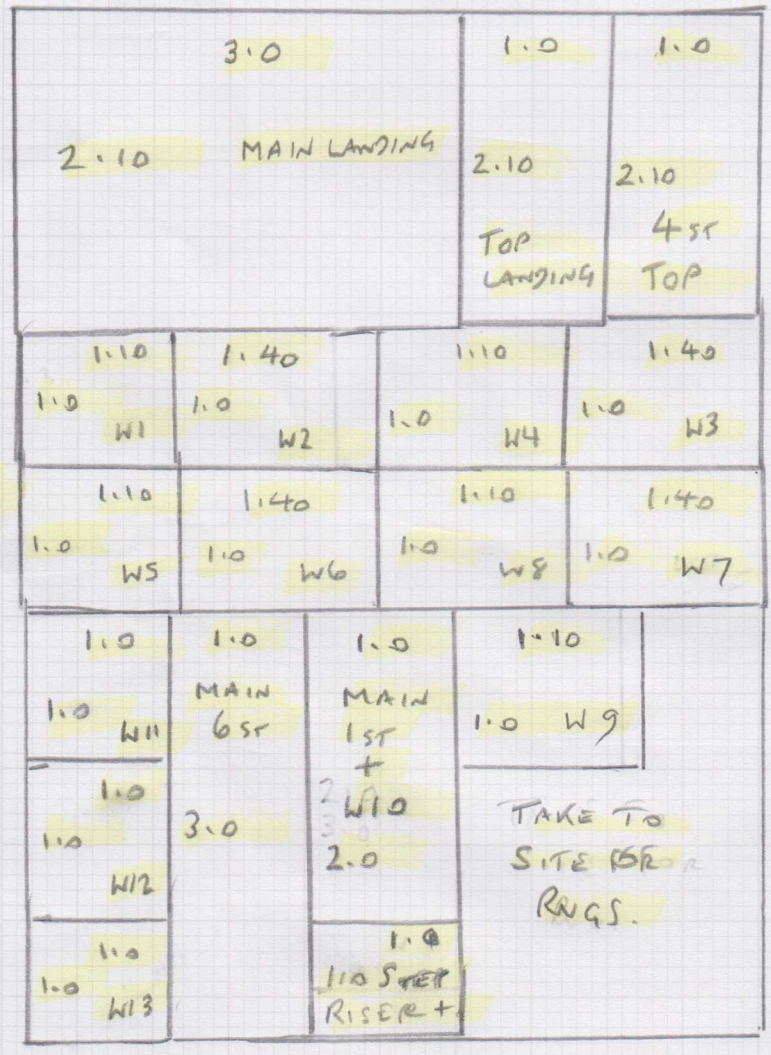 3.0
2.10 MAIN LANDING
1.0
2.10
TOP
LANDING
1.0
2.10
4 ST
TOP
1.10
1.0
W1
1.40
1.0
W2
1.10
1.0
W4
1.40
1.0
W3
1.10
1.0
W5
1.40
1.0
W6
1.10
1.0
W8
1.40
1.0
W7
1.0
1.0
W11
1.0
1.0
W12
1.0
1.0
W13
1.0
MAIN
6 ST
3.0
1.0
MAIN
1 ST
+
W10
2.0
1.0
1.0 STEP
RISER +
1.10
1.0 W9
TAKE TO
SITE FOR
RNGS.